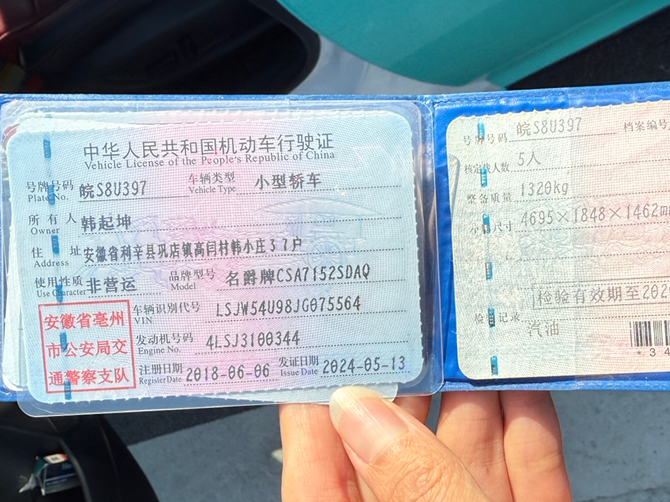 中华人民共和国机动车行驶证
Vehicle License of the People's Republic of China
号牌号码 皖S8U397 车辆类型 小型轿车
Plate No. Vehicle Type
所有人 韩起坤
Owner
住址 安徽省利辛县巩店镇高闫村韩小庄37户
Address
使用性质 非营运 品牌型号 名爵牌CSA7152SDAQ
Use Character Model
安徽省亳州
市公安局交
通警察支队
车辆识别代号 LSJW54U98JG075564
VIN
发动机号码 4LSJ3100344
Engine No.
注册日期 2018-06-06 发证日期 2024-05-13
Register Date Issue Date
号牌号码 皖S8U397 档案编号
核定载人数 5人
整备质量 1320kg
尺寸 4695×1848×1462m
检验有效期至202
检验记录
汽油
*34